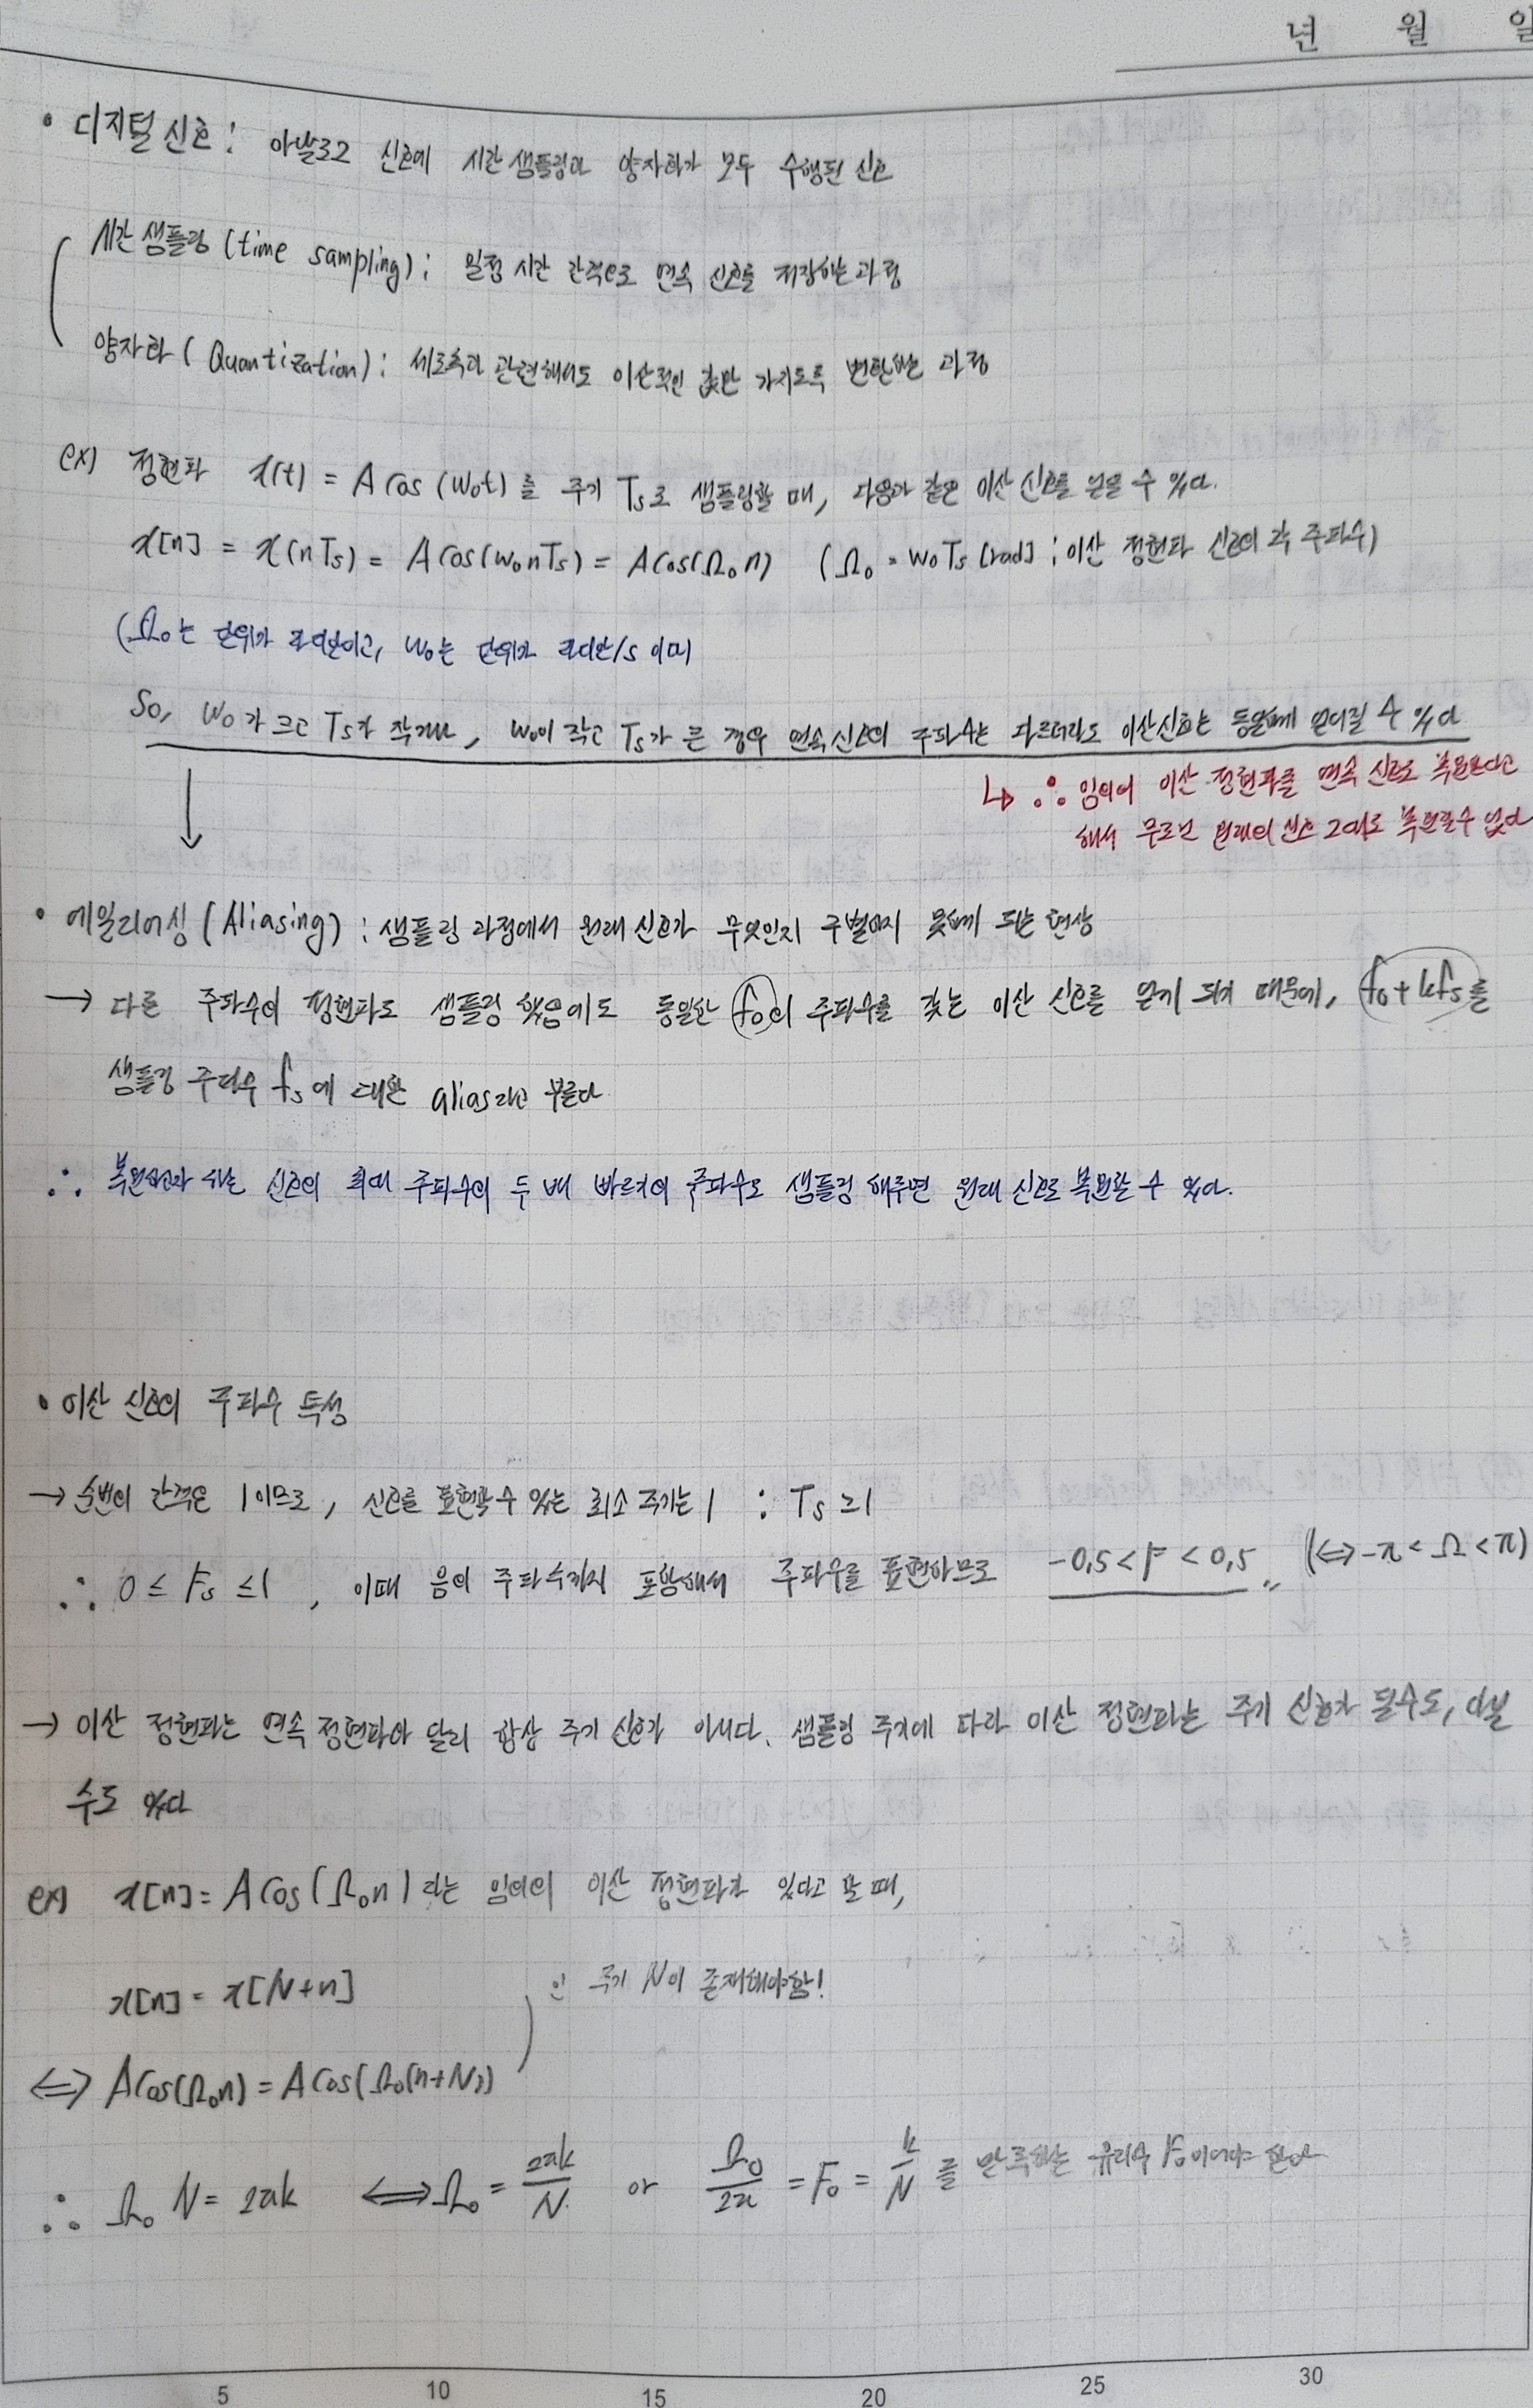 년 월 일
• 디지털 신호 : 아날로그 신호에 시간 샘플링과 양자화가 모두 수행된 신호
시간 샘플링 (time sampling) : 일정 시간 간격으로 연속 신호를 저장하는 과정
양자화 (Quantization) : 세로축과 관련해서도 이산적인 값만 가지도록 변환하는 과정
ex) 정현파 x(t) = A cos (w₀t) 를 주기 Ts로 샘플링할 때, 다음과 같은 이산 신호를 얻을 수 있다.
x[n] = x(nTs) = A cos(w₀nTs) = A cos(Ω₀n) (Ω₀ = w₀Ts [rad] : 이산 정현파 신호의 각 주파수)
(Ω₀는 단위가 라디안이고, w₀는 단위가 라디안/s 이며
So, w₀가 크고 Ts가 작거나, w₀이 작고 Ts가 큰 경우 연속신호의 주파수는 다르더라도 이산신호는 동일하게 얻어질 수 있다
↳ ∴ 임의의 이산 정현파를 연속 신호로 복원한다고
해서 무조건 원래의 신호 그대로 복원할수 없다
• 에일리어싱 (Aliasing) : 샘플링 과정에서 원래 신호가 무엇인지 구별하지 못하게 되는 현상
→ 다른 주파수의 정현파도 샘플링 했음에도 동일한 f₀의 주파수를 갖는 이산 신호를 얻게 되기 때문에, f₀+kfs를
샘플링 주파수 fs에 대한 alias라고 부른다
∴ 복원하고자 하는 신호의 최대 주파수의 두 배 빠르기의 주파수로 샘플링 해주면 원래 신호로 복원할 수 있다.
• 이산 신호의 주파수 특성
→ 순번의 간격은 1이므로, 신호를 표현할 수 있는 최소 주기는 1 : Ts ≥1
∴ 0 ≤ Fs ≤1 , 이때 음의 주파수까지 포함해서 주파수를 표현하므로 -0,5 < F < 0,5 〃 (⇔ -π < Ω < π)
→ 이산 정현파는 연속 정현파와 달리 항상 주기 신호가 아니다. 샘플링 주기에 따라 이산 정현파는 주기 신호가 될수도, 아닐
수도 있다
ex) x[n] = A cos(Ω₀n) 라는 임의의 이산 정현파가 있다고 할 때,
x[n] = x[N+n] 인 주기 N이 존재해야함!
⇔ A cos(Ω₀n) = A cos(Ω₀(n+N))
∴ Ω₀ N = 2πk ⇔ Ω₀ = 2πk/N or Ω₀/2π = F₀ = k/N 를 만족하는 유리수 F₀이어야 한다
5 10 15 20 25 30